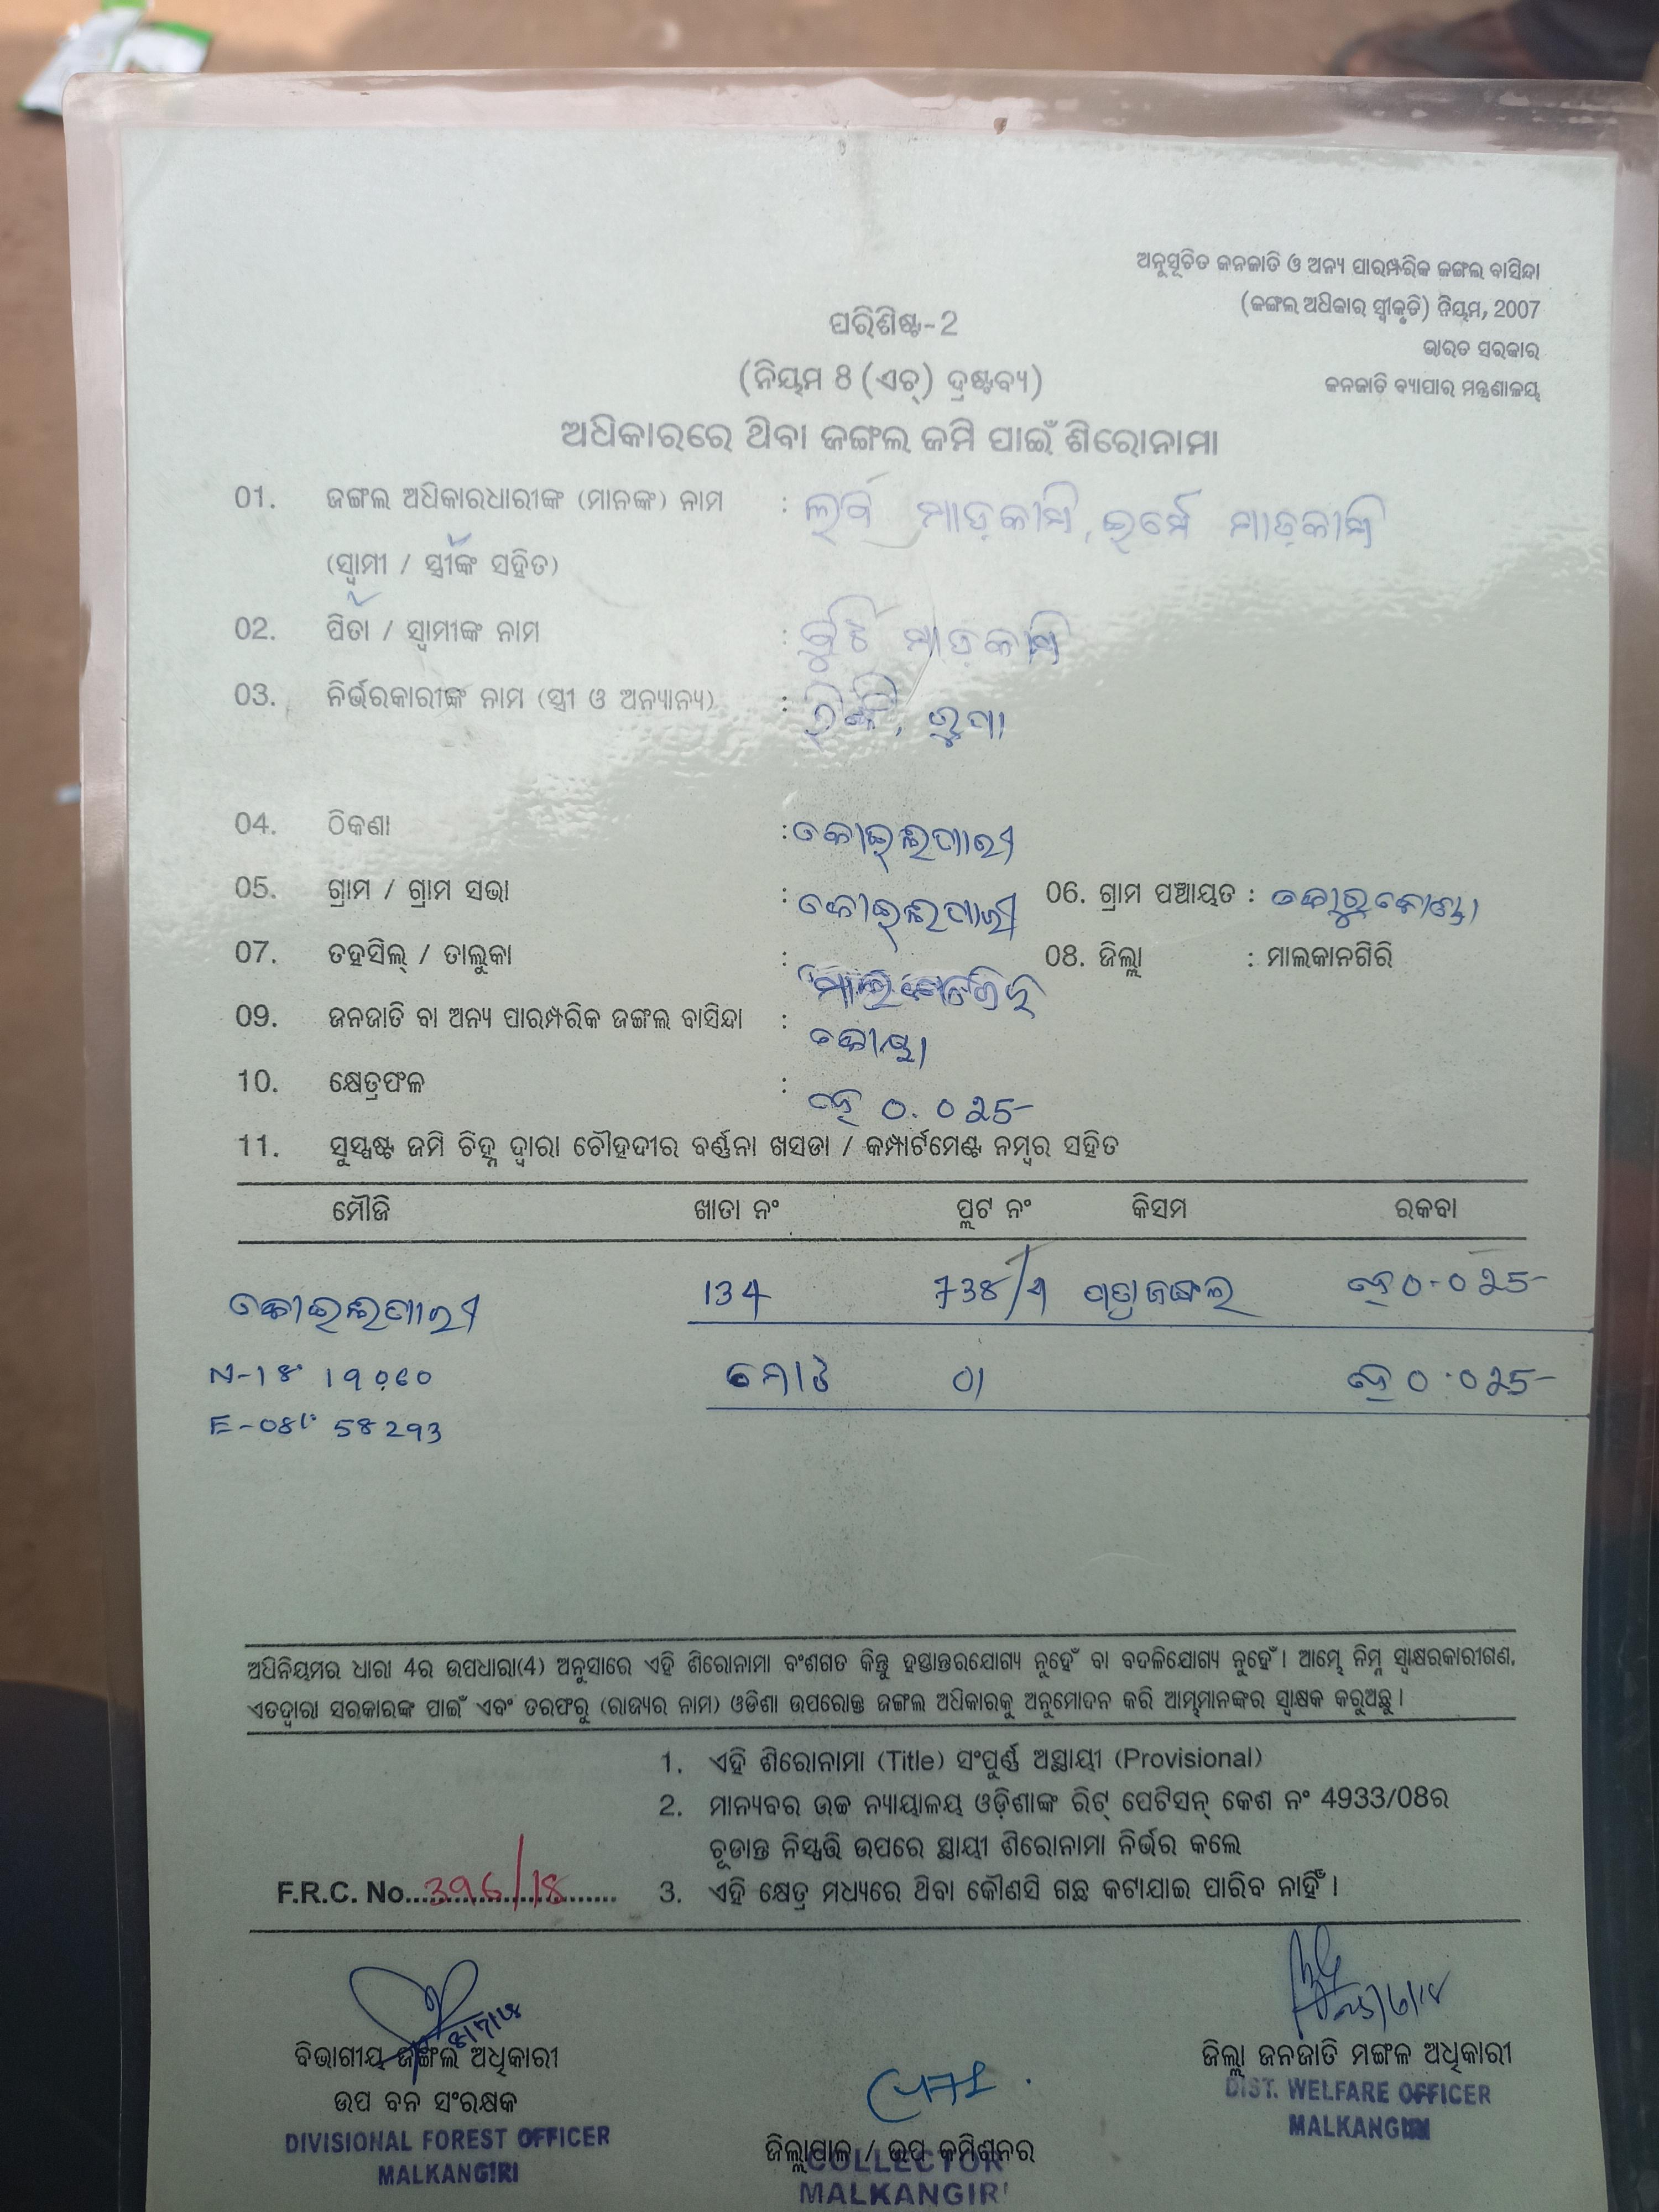 ଅନୁସୂଚିତ ଜନଜାତି ଓ ଅନ୍ୟ ପାରମ୍ପରିକ ଜଙ୍ଗଲ ବାସିନ୍ଦା
(ଜଙ୍ଗଲ ଅଧିକାର ସ୍ୱୀକୃତି) ନିୟମ, 2007
ଭାରତ ସରକାର
ଜନଜାତି ବ୍ୟାପାର ମନ୍ତ୍ରଣାଳୟ
ପରିଶିଷ୍ଟ-2
(ନିୟମ 8 (ଏଚ୍) ଦ୍ରଷ୍ଟବ୍ୟ)
ଅଧିକାରରେ ଥିବା ଜଙ୍ଗଲ ଜମି ପାଇଁ ଶିରୋନାମା
01. ଜଙ୍ଗଲ ଅଧିକାରଧାରୀଙ୍କ (ମାନଙ୍କ) ନାମ : ମାଡ଼କାମି, ମାଡ଼କାମି
(ସ୍ୱାମୀ / ସ୍ତ୍ରୀଙ୍କ ସହିତ)
02. ପିତା / ସ୍ୱାମୀଙ୍କ ନାମ : ମାଡ଼କାମି
03. ନିର୍ଭରକାରୀଙ୍କ ନାମ (ସ୍ତ୍ରୀ ଓ ଅନ୍ୟାନ୍ୟ) :
04. ଠିକଣା :
05. ଗ୍ରାମ / ଗ୍ରାମ ସଭା : 06. ଗ୍ରାମ ପଞ୍ଚାୟତ : କୋରୁକୋଣ୍ଡା
07. ତହସିଲ୍ / ତାଲୁକା : 08. ଜିଲ୍ଲା : ମାଲକାନଗିରି
09. ଜନଜାତି ବା ଅନ୍ୟ ପାରମ୍ପରିକ ଜଙ୍ଗଲ ବାସିନ୍ଦା : କୋୟା
10. କ୍ଷେତ୍ରଫଳ : ହେ 0.025
11. ସୁସ୍ପଷ୍ଟ ଜମି ଚିହ୍ନ ଦ୍ୱାରା ଚୌହଦୀର ବର୍ଣ୍ଣନା ଖସଡା / କମ୍ପାର୍ଟମେଣ୍ଟ ନମ୍ବର ସହିତ
ମୌଜି ଖାତା ନଂ ପ୍ଲଟ ନଂ କିସମ ରକବା
134 ପତ୍ରଜଙ୍ଗଲ ହେ 0.025
ମୋଟ ହେ 0.025
ଅଧିନିୟମର ଧାରା 4ର ଉପଧାରା(4) ଅନୁସାରେ ଏହି ଶିରୋନାମା ବଂଶଗତ କିନ୍ତୁ ହସ୍ତାନ୍ତରଯୋଗ୍ୟ ନୁହେଁ ବା ବଦଳିଯୋଗ୍ୟ ନୁହେଁ । ଆମ୍ଭେ ନିମ୍ନ ସ୍ୱାକ୍ଷରକାରୀଗଣ,
ଏତଦ୍ୱାରା ସରକାରଙ୍କ ପାଇଁ ଏବଂ ତରଫରୁ (ରାଜ୍ୟର ନାମ) ଓଡିଶା ଉପରୋକ୍ତ ଜଙ୍ଗଲ ଅଧିକାରକୁ ଅନୁମୋଦନ କରି ଆମ୍ଭମାନଙ୍କର ସ୍ୱାକ୍ଷକ କରୁଅଛୁ ।
1. ଏହି ଶିରୋନାମା (Title) ସଂପୂର୍ଣ୍ଣ ଅସ୍ଥାୟୀ (Provisional)
2. ମାନ୍ୟବର ଉଚ୍ଚ ନ୍ୟାୟାଳୟ ଓଡ଼ିଶାଙ୍କ ରିଟ୍ ପେଟିସନ୍ କେଶ ନଂ 4933/08ର
ଚୂଡାନ୍ତ ନିସ୍ପତ୍ତି ଉପରେ ସ୍ଥାୟୀ ଶିରୋନାମା ନିର୍ଭର କଲେ
F.R.C. No. 396/18 3. ଏହି କ୍ଷେତ୍ର ମଧ୍ୟରେ ଥିବା କୌଣସି ଗଛ କଟାଯାଇ ପାରିବ ନାହିଁ ।
ବିଭାଗୀୟ ଜଙ୍ଗଲ ଅଧିକାରୀ
ଉପ ବନ ସଂରକ୍ଷକ
DIVISIONAL FOREST OFFICER
MALKANGIRI
ଜିଲ୍ଲାପାଳ / ଉପ କମିଶନର
COLLECTOR
MALKANGIRI
ଜିଲ୍ଲା ଜନଜାତି ମଙ୍ଗଳ ଅଧିକାରୀ
DIST. WELFARE OFFICER
MALKANGIRI